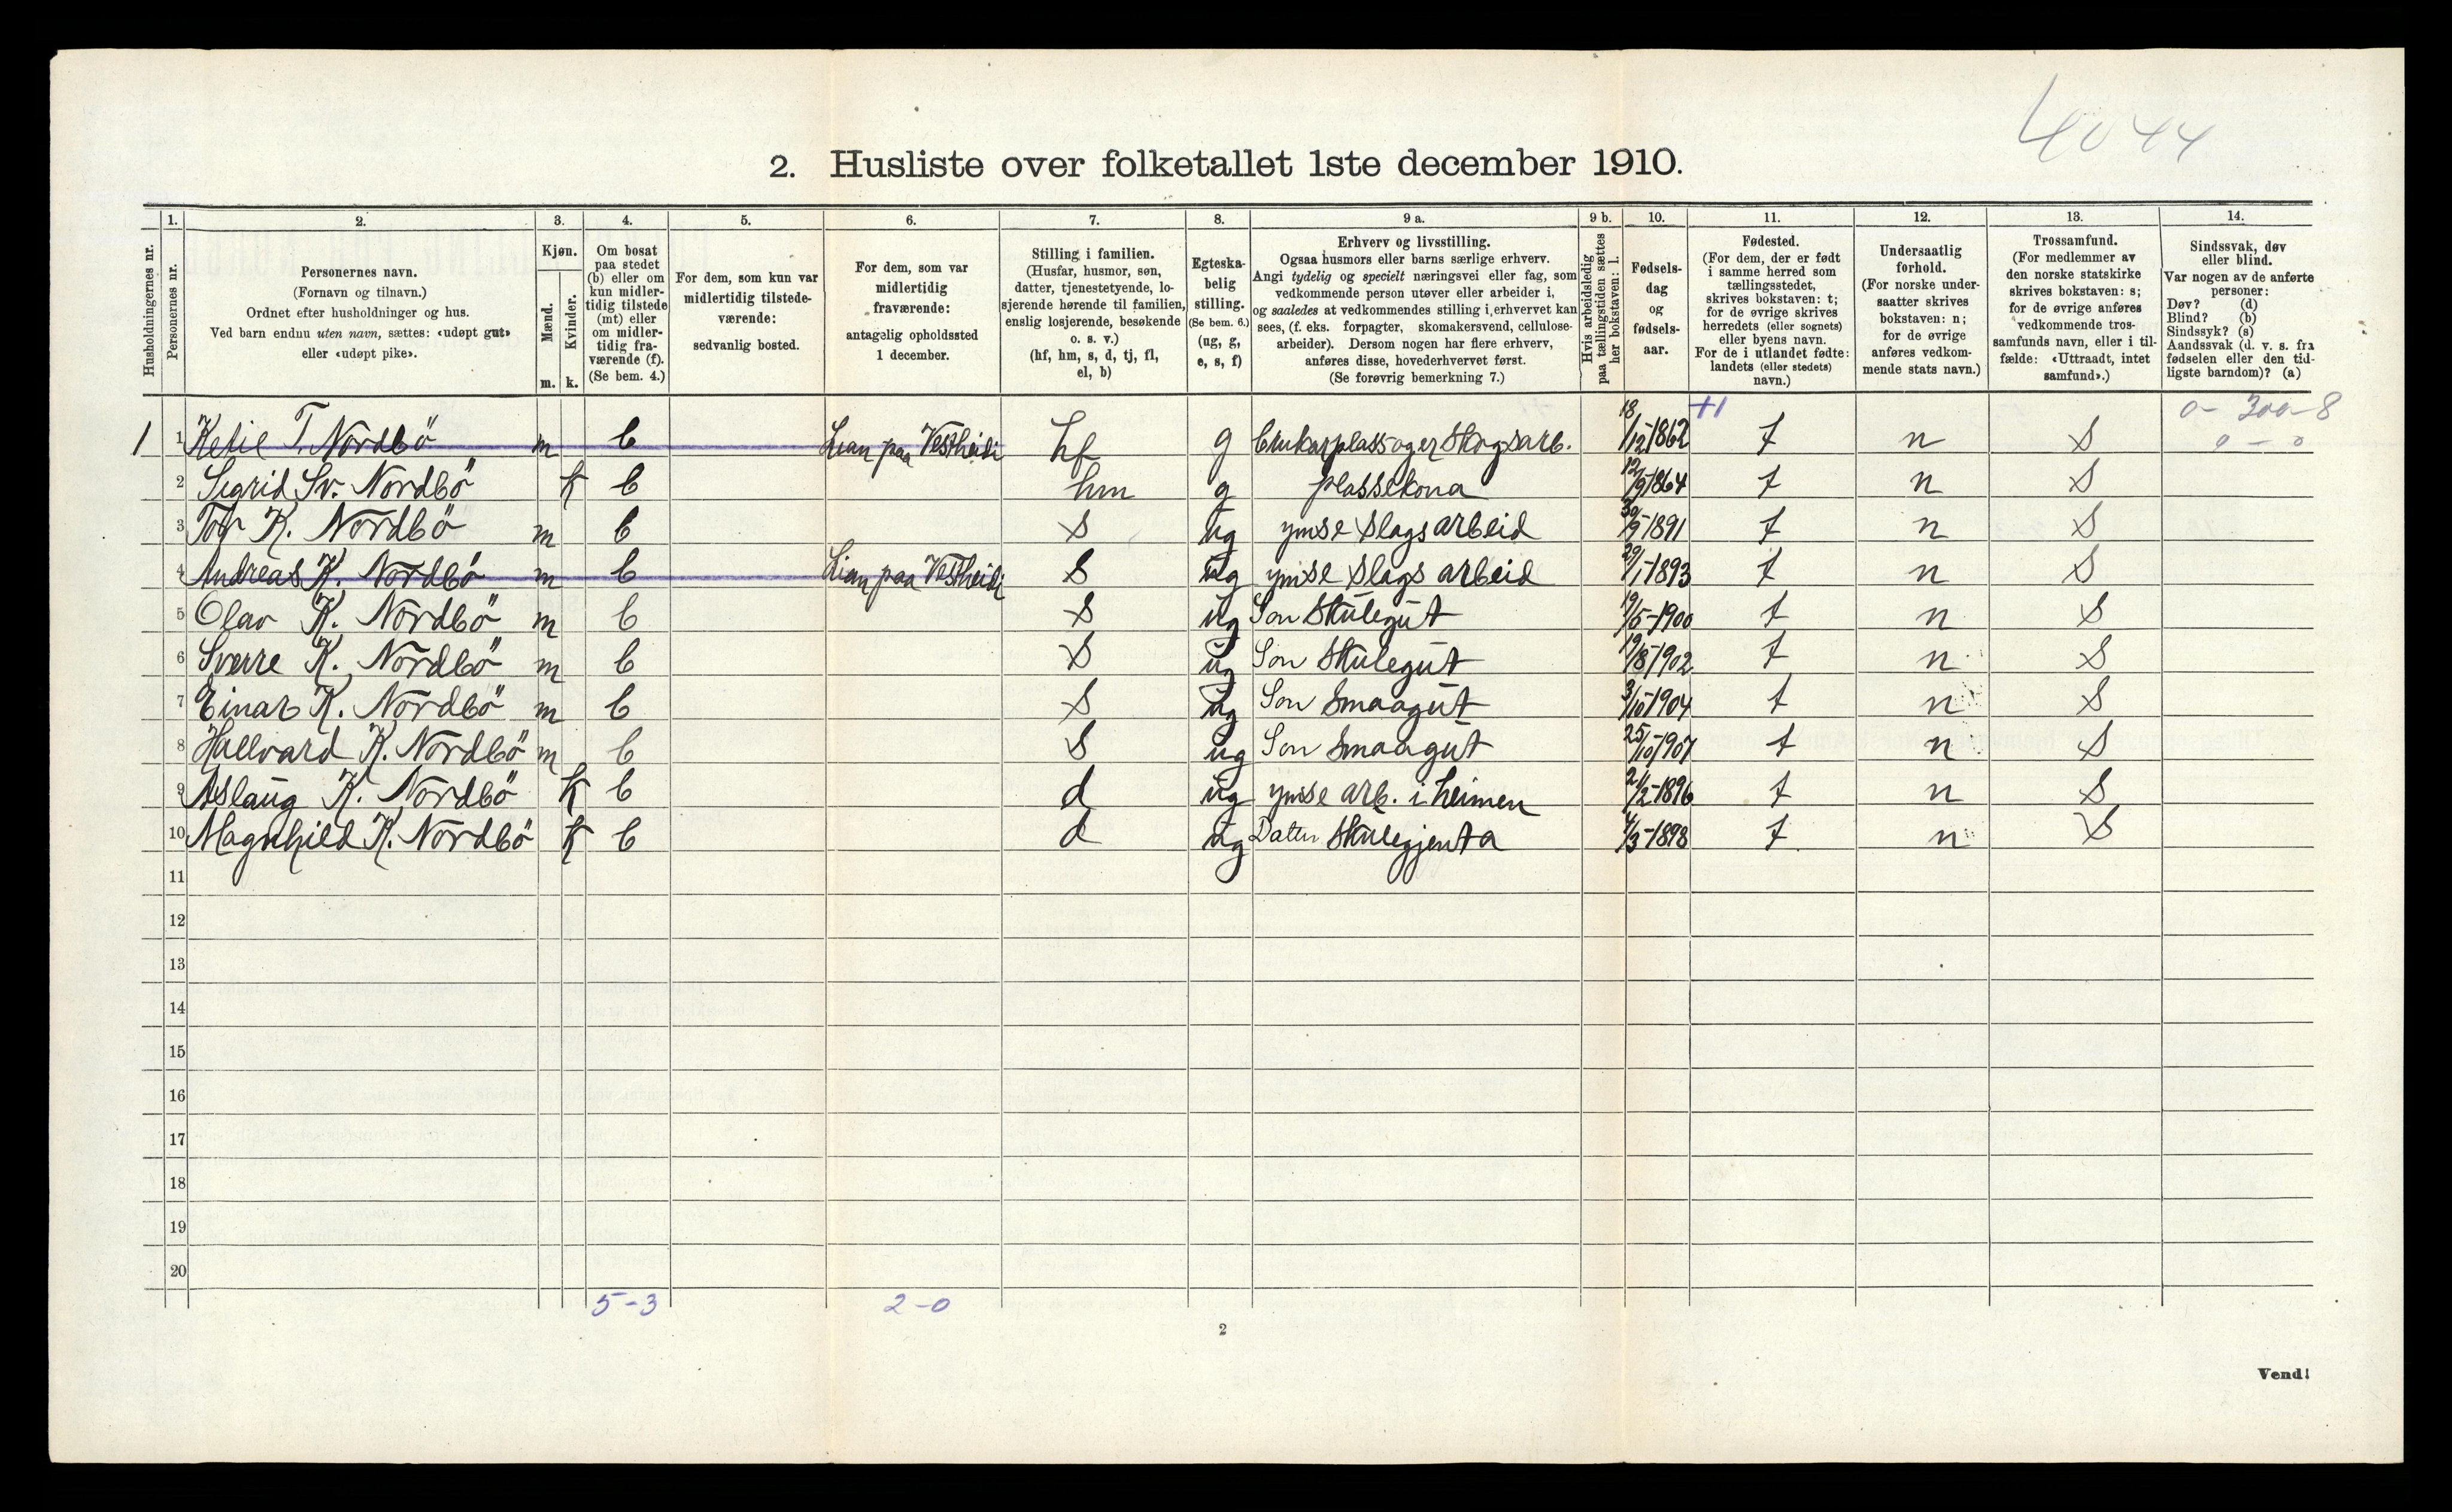 4044
2. Husliste over folketallet 1ste december 1910.
1. 2. 3. 4. 5. 6. 7. 8. 9 a. 9 b. 10. 11. 12. 13. 14.
Husholdningernes nr.
Personernes nr.
Personernes navn.
(Fornavn og tilnavn.)
Ordnet efter husholdninger og hus.
Ved barn endnu uten navn, sættes: «udøpt gut»
eller «udøpt pike».
Kjøn.
Mænd.
Kvinder.
m. k.
Om bosat
paa stedet
(b) eller om
kun midler-
tidig tilstede
(mt) eller
om midler-
tidig fra-
værende (f).
(Se bem. 4.)
For dem, som kun var
midlertidig tilstede-
værende:
sedvanlig bosted.
For dem, som var
midlertidig
fraværende:
antagelig opholdssted
1 december.
Stilling i familien.
(Husfar, husmor, søn,
datter, tjenestetyende, lo-
sjerende hørende til familien,
enslig losjerende, besøkende
o. s. v.)
(hf, hm, s, d, tj, fl,
el, b)
Egteska-
belig
stilling.
(Se bem. 6.)
(ug, g,
e, s, f)
Erhverv og livsstilling.
Ogsaa husmors eller barns særlige erhverv.
Angi tydelig og specielt næringsvei eller fag, som
vedkommende person utøver eller arbeider i,
og saaledes at vedkommendes stilling i erhvervet kan
sees, (f. eks. forpagter, skomakersvend, cellulose-
arbeider). Dersom nogen har flere erhverv,
anføres disse, hovederhvervet først.
(Se forøvrig bemerkning 7.)
Hvis arbeidsledig
paa tællingstiden sættes
her bokstaven: l.
Fødsels-
dag
og
fødsels-
aar.
Fødested.
(For dem, der er født
i samme herred som
tællingsstedet,
skrives bokstaven: t;
for de øvrige skrives
herredets (eller sognets)
eller byens navn.
For de i utlandet fødte:
landets (eller stedets)
navn.)
Undersaatlig
forhold.
(For norske under-
saatter skrives
bokstaven: n;
for de øvrige
anføres vedkom-
mende stats navn.)
Trossamfund.
(For medlemmer av
den norske statskirke
skrives bokstaven: s;
for de øvrige anføres
vedkommende tros-
samfunds navn, eller i til-
fælde: «Uttraadt, intet
samfund».)
Sindssvak, døv
eller blind.
Var nogen av de anførte
personer:
Døv? (d)
Blind? (b)
Sindssyk? (s)
Aandssvak (d. v. s. fra
fødselen eller den tid-
ligste barndom)? (a)
+1 0-300-8
1 1 Ketil T. Nordbö m b Lian paa Vestheidi hf g brukar plass og er Skogsarb. 18/12-1862 t n S 0-0
2 Sigrid Sv. Nordbö k b hm g plasskona 12/9-1864 t n S
3 Tor K. Nordbö m b S ug ymse Slags arbeid 30/9-1891 t n S
4 Andreas K. Nordbö m b Lian paa Vestheidi S ug ymse Slags arbeid 29/1-1893 t n S
5 Olav K. Nordbö m b S ug Son Skulegut 19/5-1900 t n S
6 Sverre K. Nordbö m b S ug Son Skulegut 19/8-1902 t n S
7 Einar K. Nordbö m b S ug Son Smaagut 3/10-1904 t n S
8 Hallvard K. Nordbö m b S ug Son Smaagut 25/10-1907 t n S
9 Aslaug K. Nordbö k b d ug ymse arb. i heimen 2/2-1896 t n S
10 Magnhild K. Nordbö k b d ug Dater Skulegjenta 4/3-1898 t n S
11
12
13
14
15
16
17
18
19
20
5-3 2-0
2
Vend!